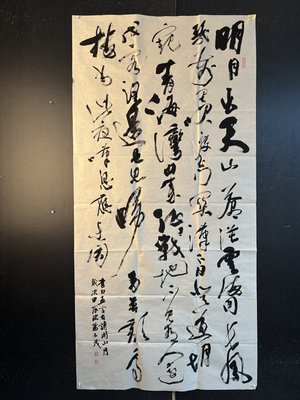 明月出天山蒼茫雲海間長風
幾萬里吹度玉門關漢下白登道胡
窺青海灣由來征戰地不見有人還
戍客望邊色思歸多苦顏高
樓當此夜歎息應未閑
李白五言古詩關山月
歲次甲辰